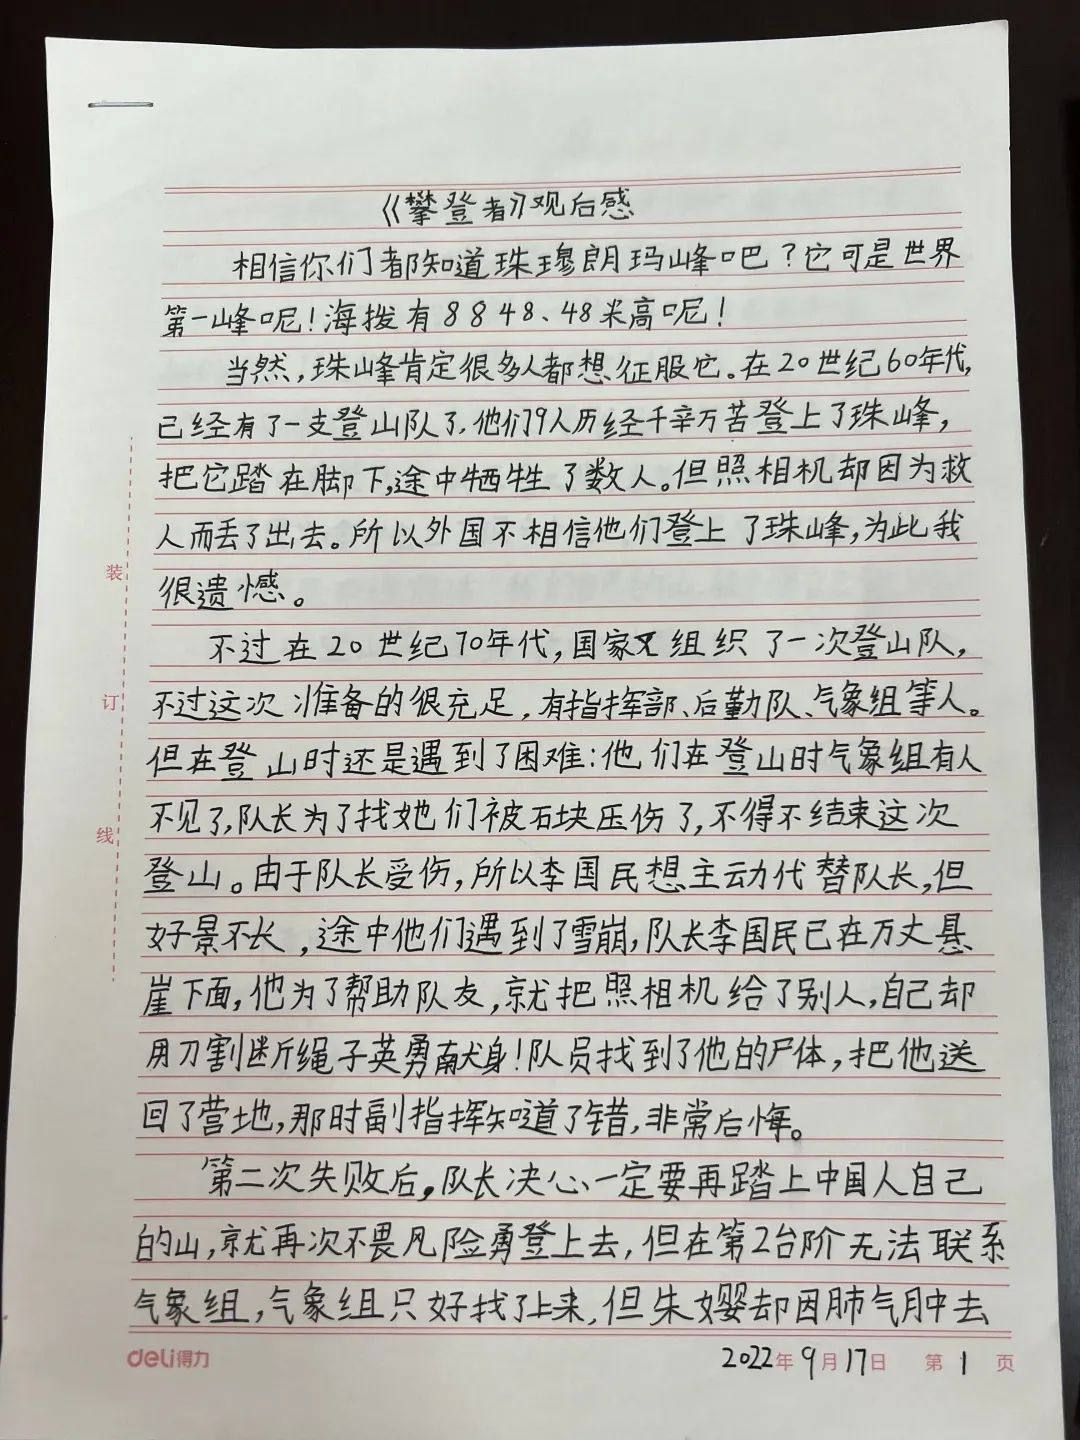 《攀登者》观后感
相信你们都知道珠穆朗玛峰吧？它可是世界
第一峰呢！海拨有8848、48米高呢！
当然，珠峰肯定很多人都想征服它。在20世纪60年代，
已经有了一支登山队了，他们9人历经千辛万苦登上了珠峰，
把它踏在脚下，途中牺牲了数人。但照相机却因为救
人而丢了出去。所以外国不相信他们登上了珠峰，为此我
很遗憾。
不过在20世纪70年代，国家又组织了一次登山队，
不过这次准备的很充足，有指挥部、后勤队、气象组等人。
但在登山时还是遇到了困难：他们在登山时气象组有人
不见了，队长为了找她们被石块压伤了，不得不结束这次
登山。由于队长受伤，所以李国民想主动代替队长，但
好景不长，途中他们遇到了雪崩，队长李国民已在万丈悬
崖下面，他为了帮助队友，就把照相机给了别人，自己却
用刀割断绳子英勇献身！队员找到了他的尸体，把他送
回了营地，那时副指挥知道了错，非常后悔。
第二次失败后，队长决心一定要再踏上中国人自己
的山，就再次不畏风险勇登上去，但在第2台阶无法联系
气象组，气象组只好找了上来，但朱婴却因肺气肿去
装
订
线
deli得力
2022年9月17日 第1页